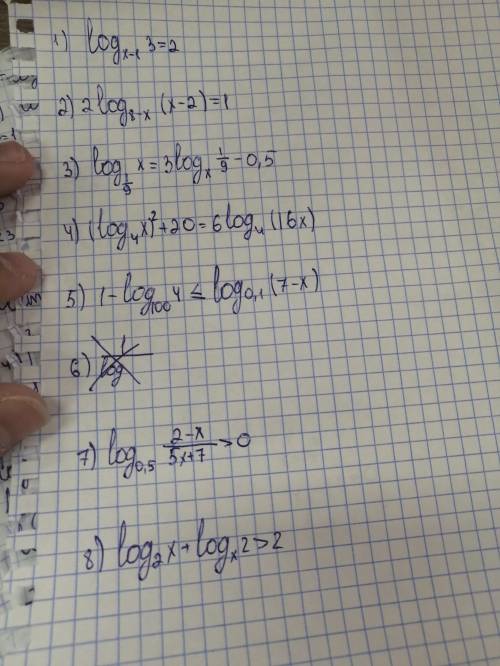 1) log_{x-1} 3=2
2) 2log_{8-x} (x-2)=1
3) log_{1/9} x = 3log_x 1/9 - 0,5
4) (log_4 x)^2 + 20 = 6log_4 (16x)
5) 1-log_{100} 4 ≤ log_{0,1} (7-x)
6)
7) log_{0,5} (2-x)/(5x+7) > 0
8) log_2 x + log_x 2 > 2